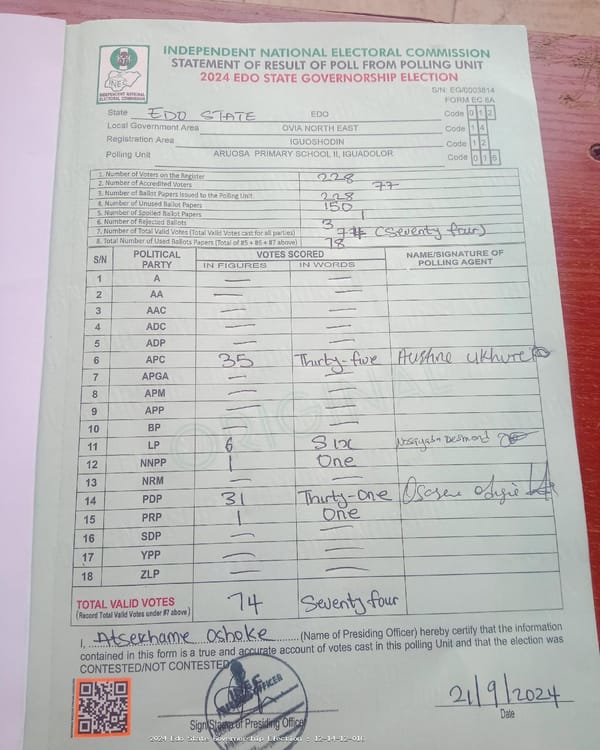 INDEPENDENT NATIONAL ELECTORAL COMMISSION
STATEMENT OF RESULT OF POLL FROM POLLING UNIT
2024 EDO STATE GOVERNORSHIP ELECTION
INEC
INDEPENDENT NATIONAL ELECTORAL COMMISSION
S/N: EG/0003814
FORM EC 8A
State EDO STATE EDO Code 0 1 2
Local Government Area OVIA NORTH EAST Code 1 4
Registration Area IGUOSHODIN Code 1 2
Polling Unit ARUOSA PRIMARY SCHOOL II, IGUADOLOR Code 0 1 6
1. Number of Voters on the Register 228
2. Number of Accredited Voters 77
3. Number of Ballot Papers Issued to the Polling Unit 228
4. Number of Unused Ballot Papers 150
5. Number of Spoiled Ballot Papers 1
6. Number of Rejected Ballots 3
7. Number of Total Valid Votes (Total Valid Votes cast for all parties) (Seventy four)
8. Total Number of Used Ballots Papers (Total of #5 + #6 + #7 above) 78
S/N POLITICAL PARTY VOTES SCORED NAME/SIGNATURE OF POLLING AGENT
IN FIGURES IN WORDS
1 A — —
2 AA — —
3 AAC — —
4 ADC — —
5 ADP — —
6 APC 35 Thirty-five
7 APGA — —
8 APM — —
9 APP — —
10 BP — —
11 LP 6 Six Desmond
12 NNPP 1 One
13 NRM — —
14 PDP 31 Thirty-One
15 PRP 1 One
16 SDP — —
17 YPP — —
18 ZLP — —
ORIGINAL
TOTAL VALID VOTES 74 Seventy four
(Record Total Valid Votes under #7 above)
I, Atsekhame Oshoke (Name of Presiding Officer) hereby certify that the information
contained in this form is a true and accurate account of votes cast in this polling Unit and that the election was
CONTESTED/NOT CONTESTED
INEC
OFFICER
Sign/Stamp of Presiding Officer
21/9/2024
Date
2024 Edo State Governorship Election : 12-14-12-016